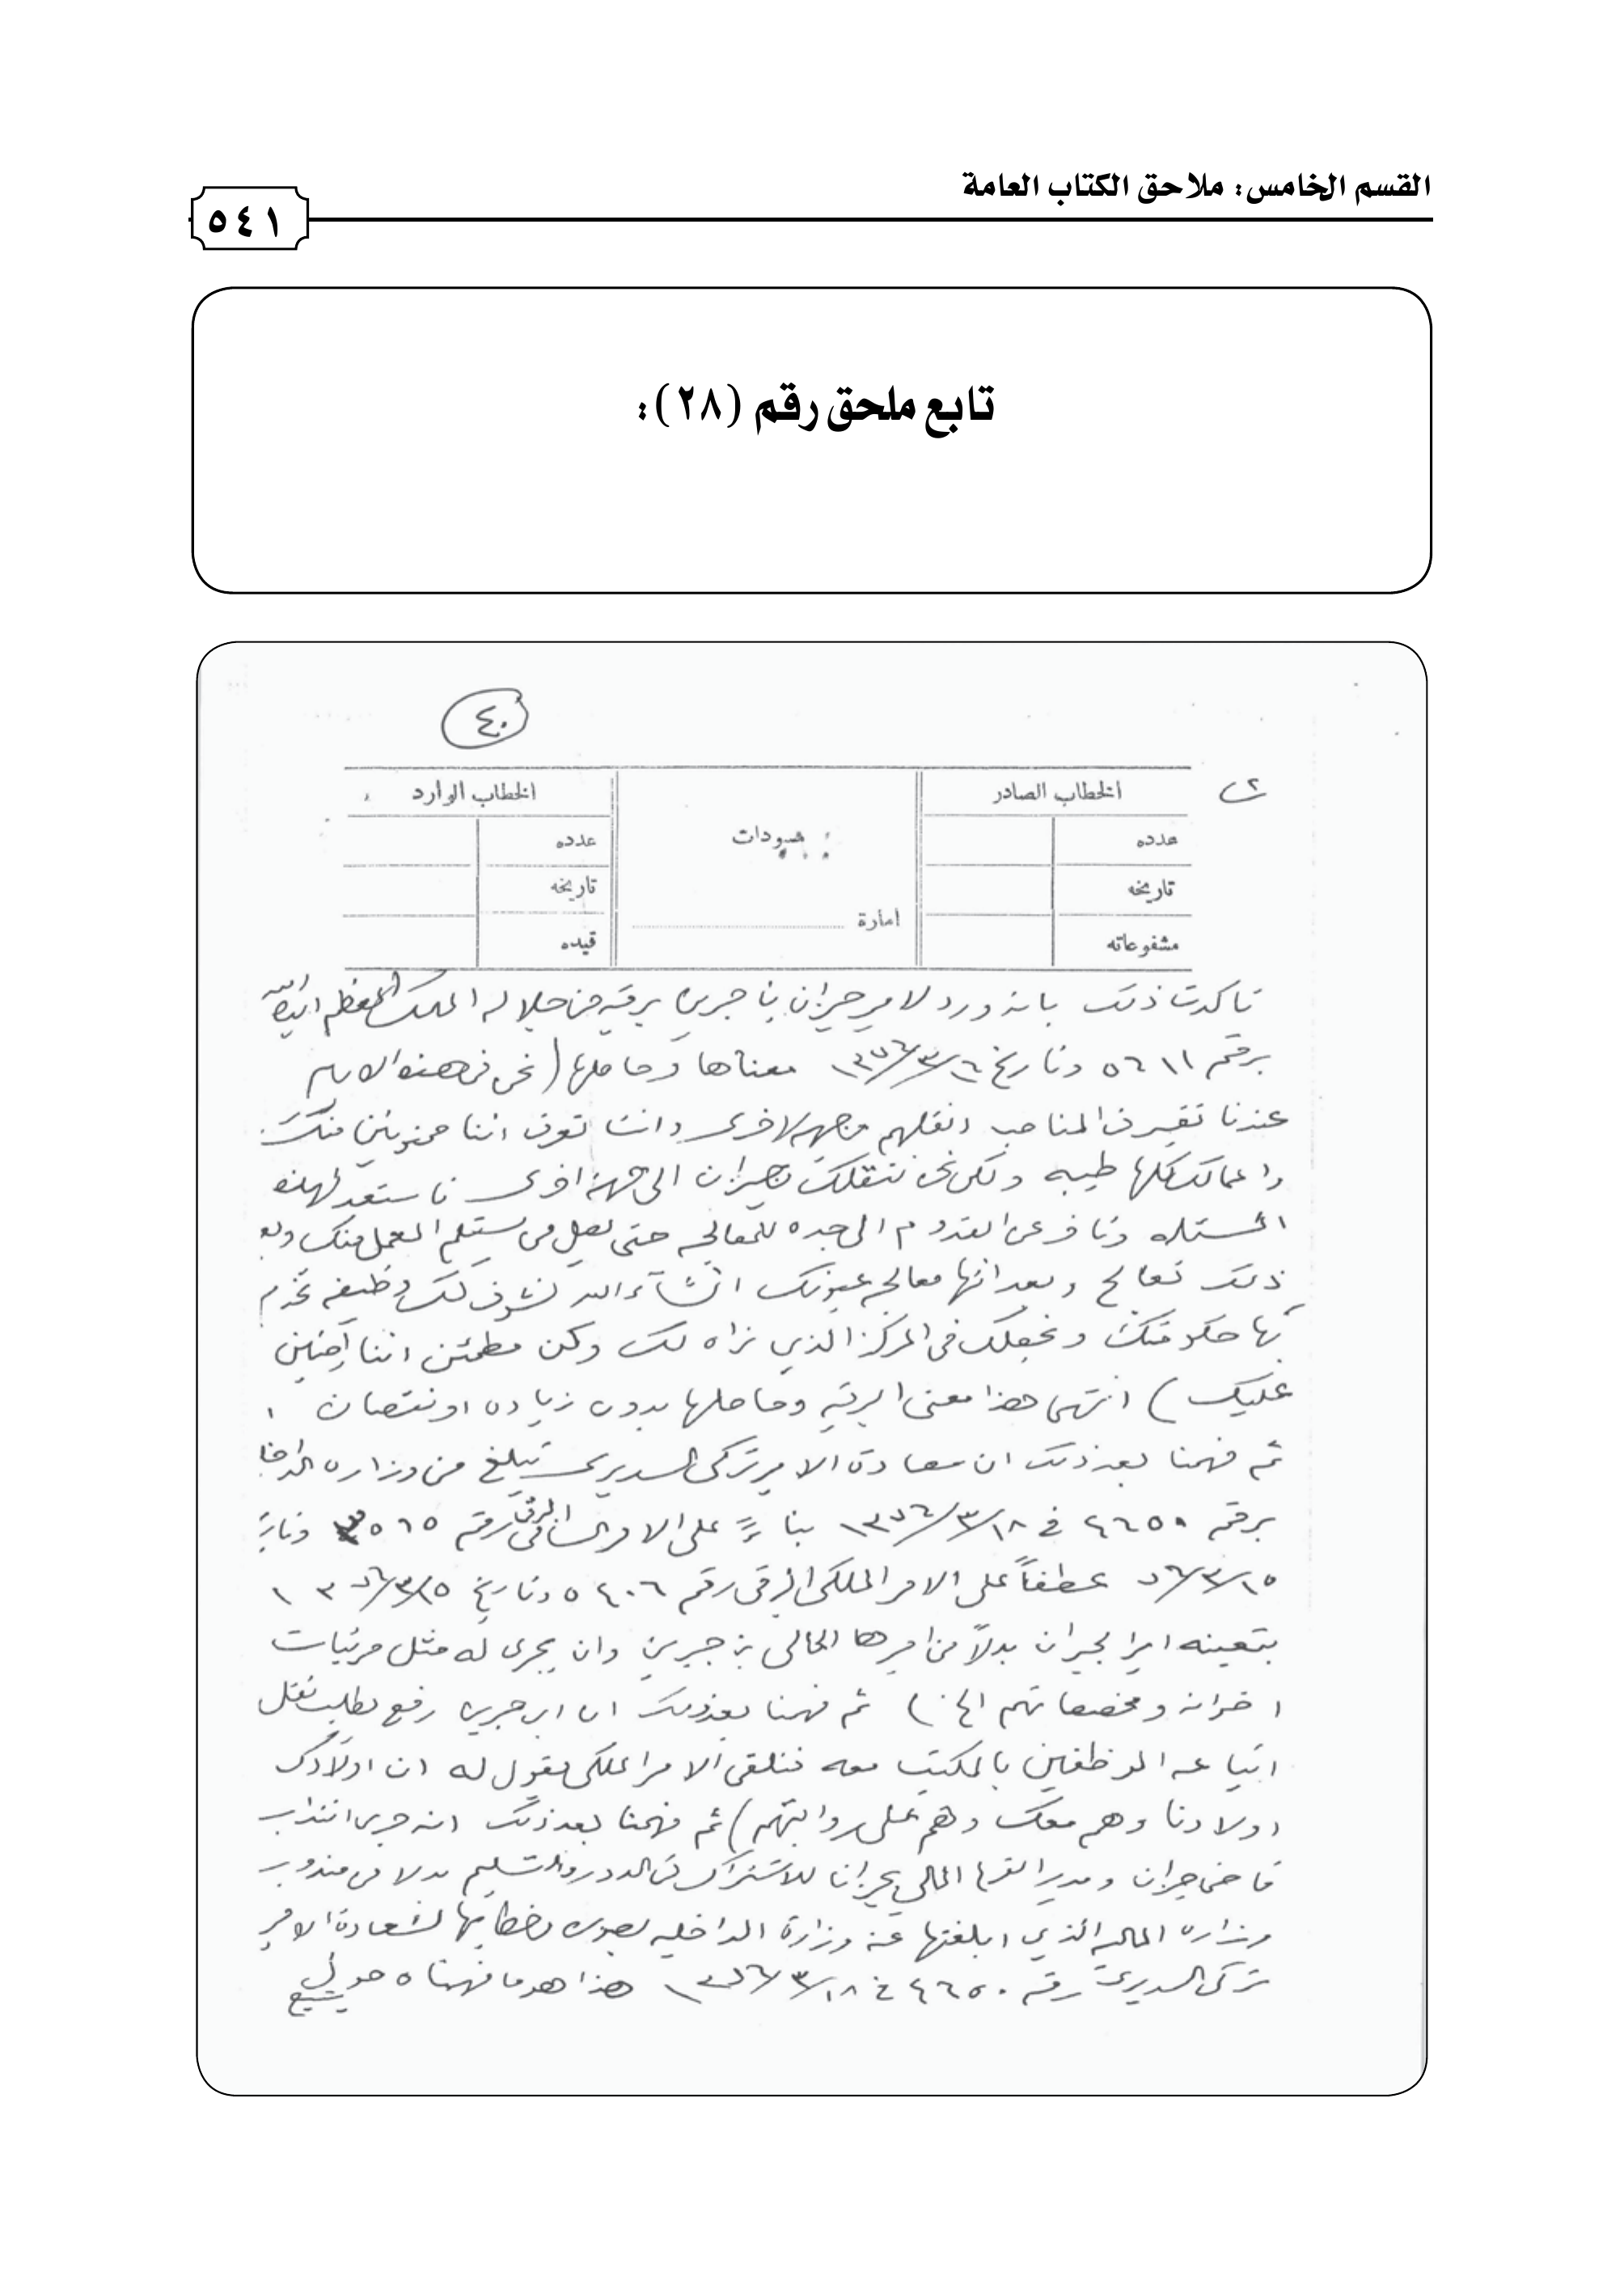 القسم الخامس: ملاحق الكتاب العامة
٥٤١
تابع ملحق رقم (٢٨):
٤٠
٢
الخطاب الصادر
عدده
تاريخه
مشفوعاته
مسودات
امارة
الخطاب الوارد
عدده
تاريخه
قيده
تاكدت ذلك بانه ورد لامير جيزان بن جبرين برقيه من جلالة الملك المعظم ايده الله
برقم ٥٦١١ وتاريخ ١٣٧٦/٣/١٦ معناها وحاصلها (نحن في هذه الايام
عندنا تغير في المناصب انقلهم من جهه لاخرى وانت تعرف اننا ممنونين منك
واعمالك كلها طيبه ولكن نحن ننقلك من جيزان الى جهة اخرى فاستعد لهذه
المسئله وتأخر عن القدوم الى جده للمعالجه حتى يصل من يستلم العمل منك وبعد
ذلك تعالج وبعد انتها معالجه عيونك انشآء الله نشوف لك وظيفه تخدم
بها حكومتك ونجعلك في المركز الذي نراه لك وكن مطمئن اننا آمنين
عليك) انتهى هذا معنى البرقيه وحاصلها بدون زياده او نقصان
ثم فهمنا بعد ذلك ان سعادة الامير تركي السديري تبلغ من وزاره الداخليه
برقم ٤٦٥٠ في ١٣٧٦/٣/١٨ بناءً على الامر السامي البرقي رقم ٥٦٥ وتاريخ
٧٦/٣/١٥ عطفاً على الامر الملكي البرقي رقم ٥٤٠٦ وتاريخ ١٣٧٦/٣/١٥
بتعينه اميرا لجيزان بدلاً من اميرها الحالي بن جبرين وان يجرى له مثل مرتبات
اخوانه ومخصصاتهم الخ) ثم فهمنا بعد ذلك ان ابن جبرين رفع بطلب نقل
اتباعه الموظفين بالمكتب معه فتلقى الامر الملكي بقول له ان اولادك
اولادنا وهم معك وهم على رواتبهم) ثم فهمنا بعد ذلك انه جرى انتداب
قاضي جيزان ومدير المالي بجيزان للاشتراك في الدور والتسليم بدلا من مندوب
وزاره الماليه الذي ابلغتها عنه وزارة الداخليه بصورة خطابها لسعادة الامير
تركي السديري رقم ٤٦٥٠ في ١٣٧٦/٣/١٨ هذا هو ما فهمناه حول
يتبع